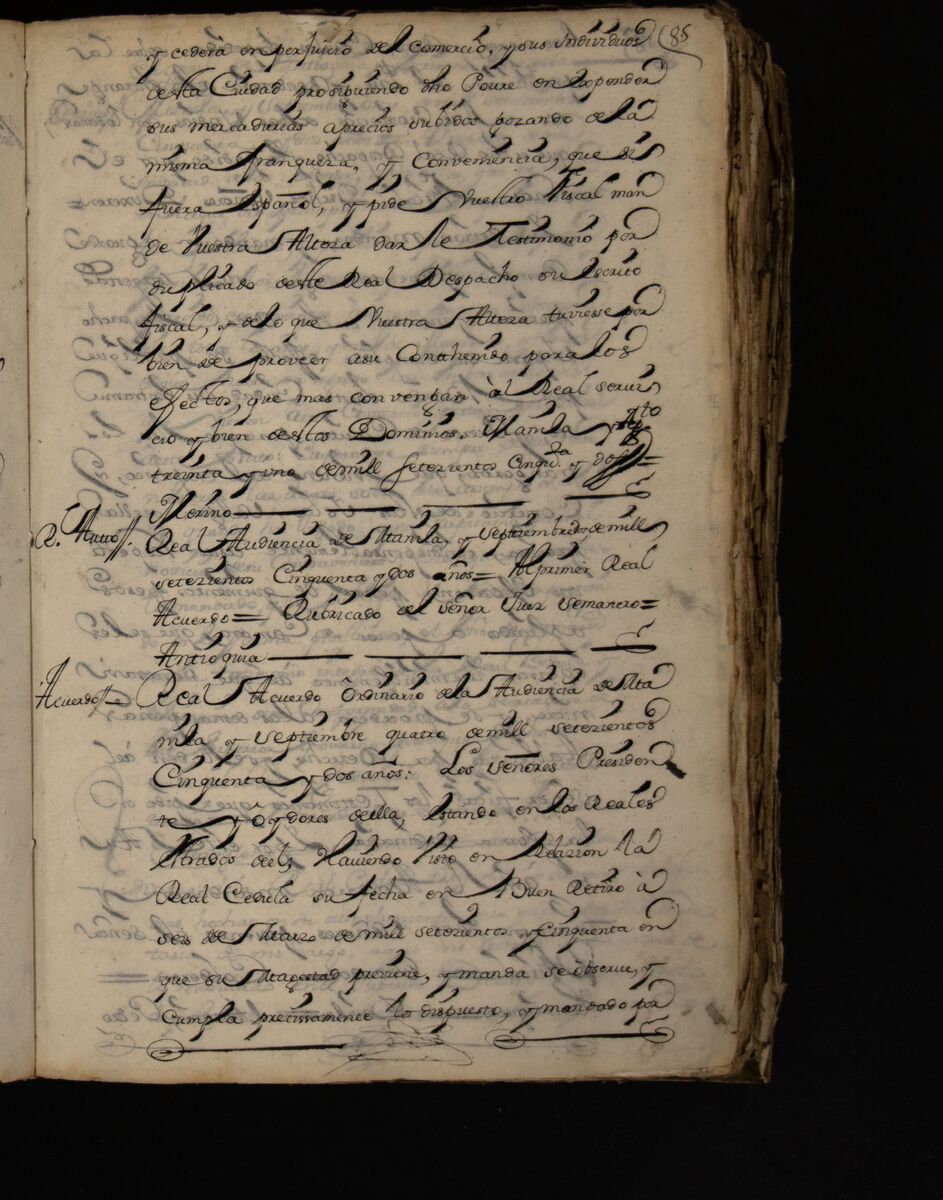 85
y cederà en perjuicio del comercio, y sus Individuos
desta Ciudad prosiguiendo dho Poure en Expender
sus mercadurias a precios subidos gozando de la
misma franqueza, y Conveniencia, que si
fuera Español, y pide Vuestro Fiscal man
de Vuestra Alteza darle Testimonio por
duplicado deste Real Despacho su Escrito
fiscal, y de lo que Vuestra Alteza tuviesse por
bien de proveer a su Conthenido para los
efectos, que mas convengan àl Real servi
cio y bien destos Dominios. Manila y Agto
treinta y uno de mill setezientos Cinqta y dos =
Merino
Rl. Autto //. Real Audiencia de Manila, y septtiembre de mill
setezientos Cinquenta y dos años = Al primer Real
Acuerdo = Rubricado del señor Juez semanero =
Antioquia
Acuerdo // Real Acuerdo Ordinario de la Audiencia de Ma
nila y septiembre quatro de mill setezientos
Cinquenta y dos años: Los señores Presiden
te y Oydores de ella, Estando en los Reales
Estrados del, Haviendo Visto en Relazion la
Real Cedula su fecha en Buen Retiro à
seis de Marzo de mill setezientos y Cinquenta en
que su Magestad previene, y manda se observe, y
Cumpla precissamente lo dispuesto, y mandado por